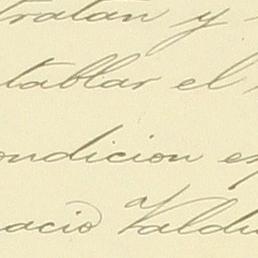 tratan y
tablar el
ondicion es
nacio Valdi